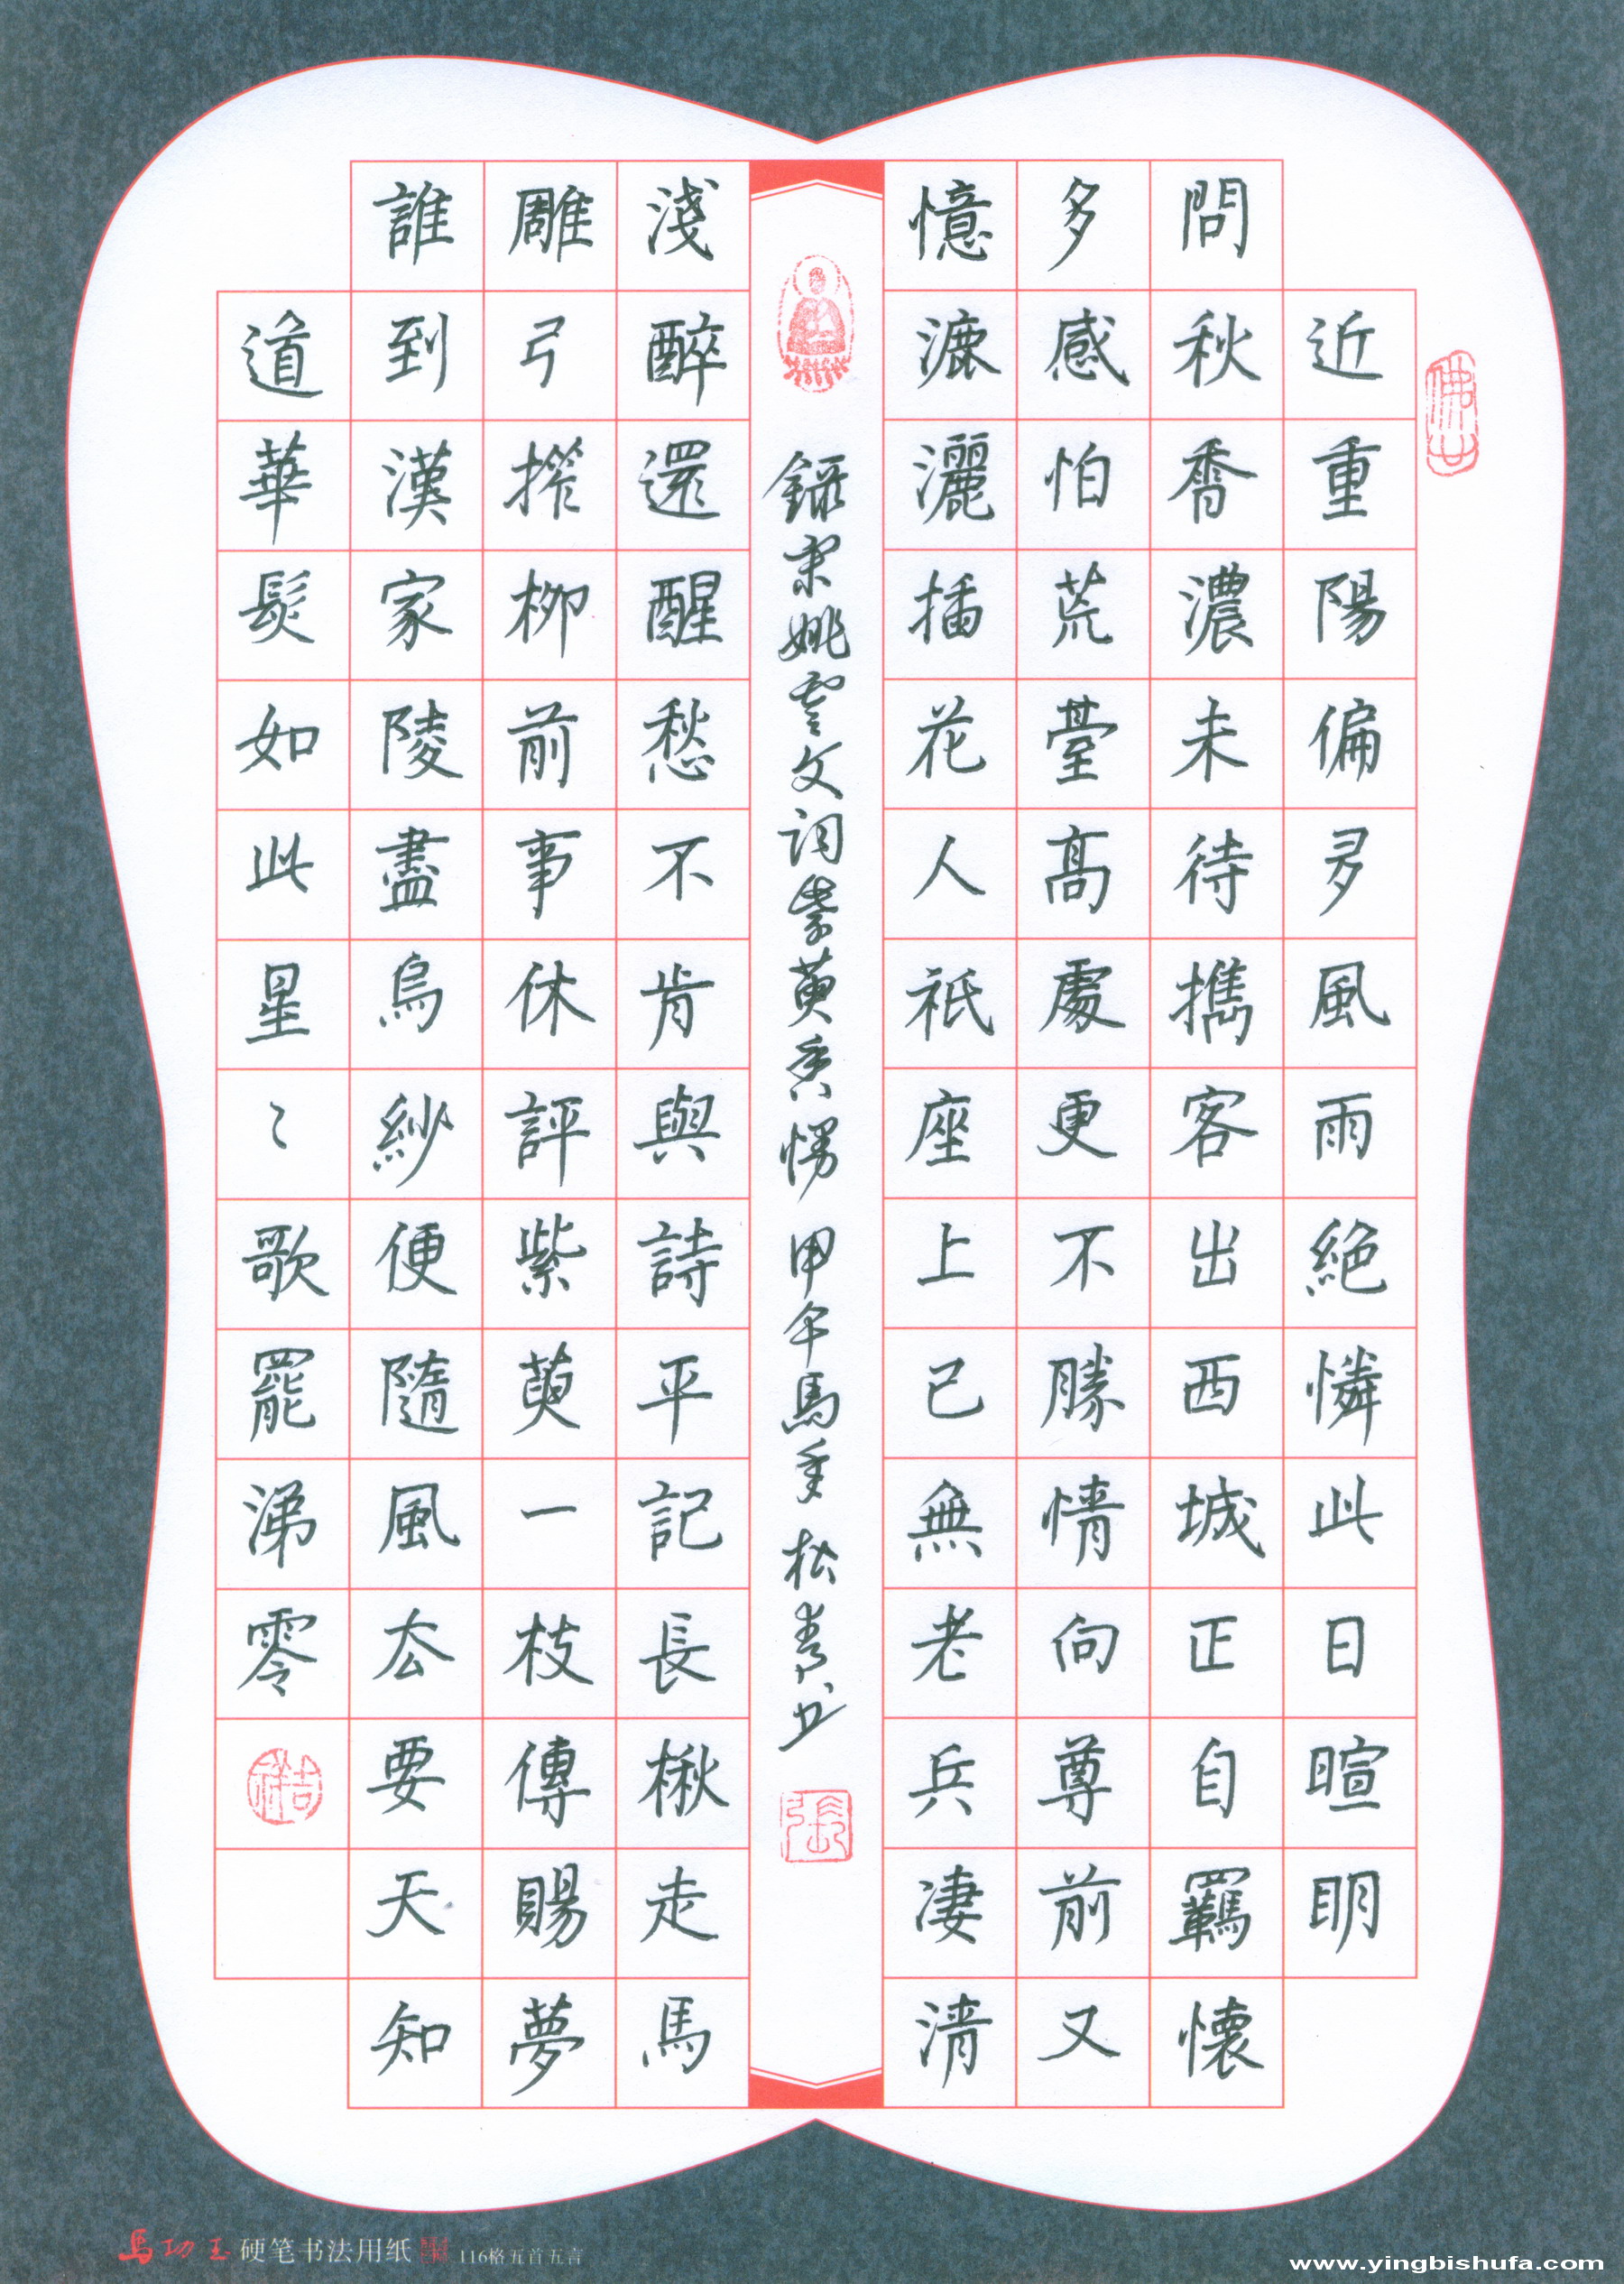 近重陽偏多風雨絕憐此日暄明
問秋香濃未待攜客出西城正自羈懷
多感怕荒臺高處更不勝情向尊前又
憶漉灑插花人袛座上已無老兵淒清
淺醉還醒愁不肯與詩平記長楸走馬
雕弓搾柳前事休評紫萸一枝傳賜夢
誰到漢家陵盡烏紗便隨風去要天知
道華髮如此星〻歌罷涕零
錄宋姚雲文詞紫萸香慢 甲午馬年 松青书
佛山
吉祥
馬功玉 硬笔书法用纸 116格五首五言
www.yingbishufa.com